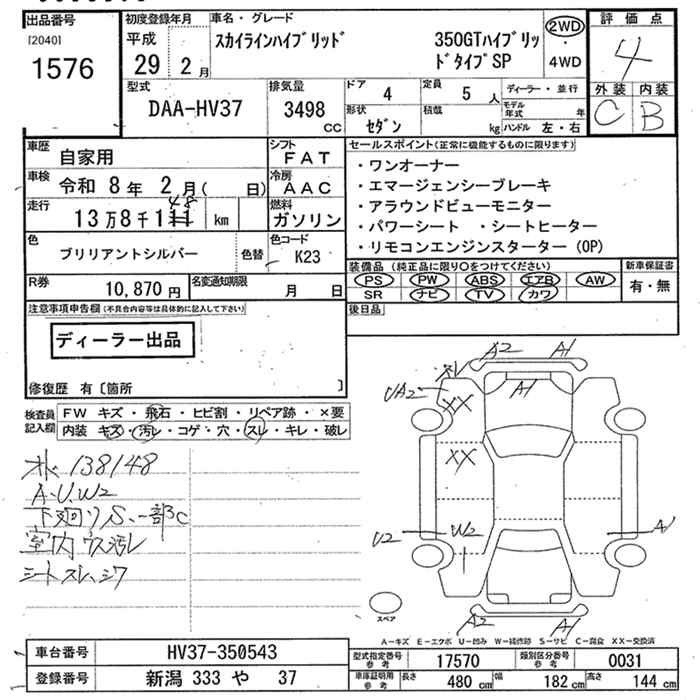 出品番号
[2040]
1576
初度登録年月
平成
29 2月
車名・グレード
スカイラインハイブリッド 350GTハイブリッ
ドタイプSP
2WD
・
4WD
評価点
4
外装 内装
C B
型式
DAA-HV37
排気量
3498
CC
ドア 4
定員 5 人
形状 セダン
積載 kg
ディーラー・並行
モデル年式 年
ハンドル 左・右
車歴 自家用
シフト FAT
車検 令和 8年 2月( 日)
冷房 AAC
走行 13万8千111 km
48
燃料 ガソリン
色 ブリリアントシルバー
色替
色コード K23
R券 10,870円
名変通知期限 月 日
セールスポイント(正常に機能するものに限ります)
・ワンオーナー
・エマージェンシーブレーキ
・アラウンドビューモニター
・パワーシート ・シートヒーター
・リモコンエンジンスターター(OP)
装備品 (純正品に限り○をつけてください)
PS PW ABS エアB AW
SR ナビ TV カワ
新車保証書
有・無
後日品
注意事項申告欄(不具合内容等は具体的に記入して下さい)
ディーラー出品
修復歴 有〔箇所 〕
検査員
記入欄
FW キズ・飛石・ヒビ割・リペア跡・×要
内装 キズ・汚レ・コゲ・穴・スレ・キレ・破レ
138148
A.U.W2
下廻りS.一部C
室内 ウス汚レ
シートスレ、シワ
A2 A1
スレ
A1
UA2
XX
XX
U2
W2
A1
A2 A1
スペア
A-キズ E-エクボ U-凹み W-補修跡 S-サビ C-腐食 XX-交換済
車台番号 HV37-350543
登録番号 新潟 333 や 37
型式指定番号
参考
17570
類別区分番号
参考
0031
車庫証明用
参考
長さ 480 cm
幅 182 cm
高さ 144 cm